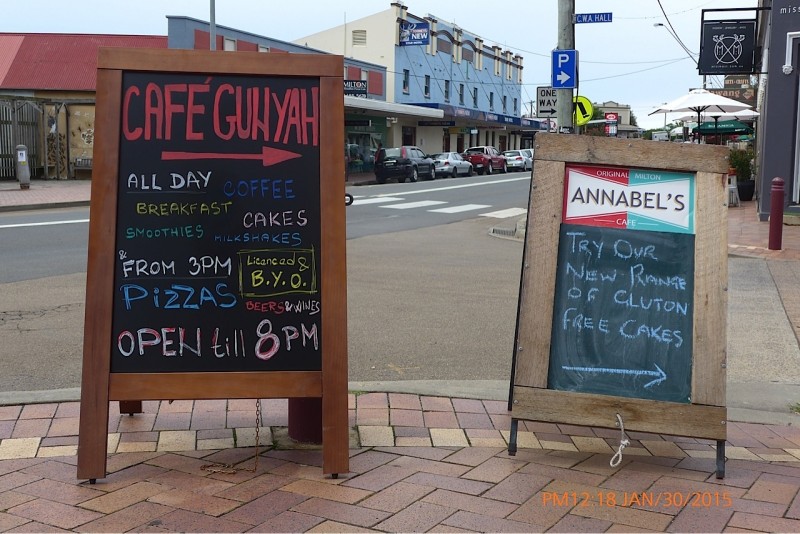 CAFÉ GUNYAH
ALL DAY COFFEE
BREAKFAST CAKES
SMOOTHIES MILKSHAKES
& FROM 3PM
Licenced &
B.Y.O.
PiZZAS
BEERS & WINES
OPEN till 8PM
ORIGINAL MILTON
ANNABEL'S
CAFE
TRY OUR
NEW RANGE
OF GLUTON
FREE CAKES
C.W.A. HALL
P
ONE
WAY
NEW
PM12:18 JAN/30/2015